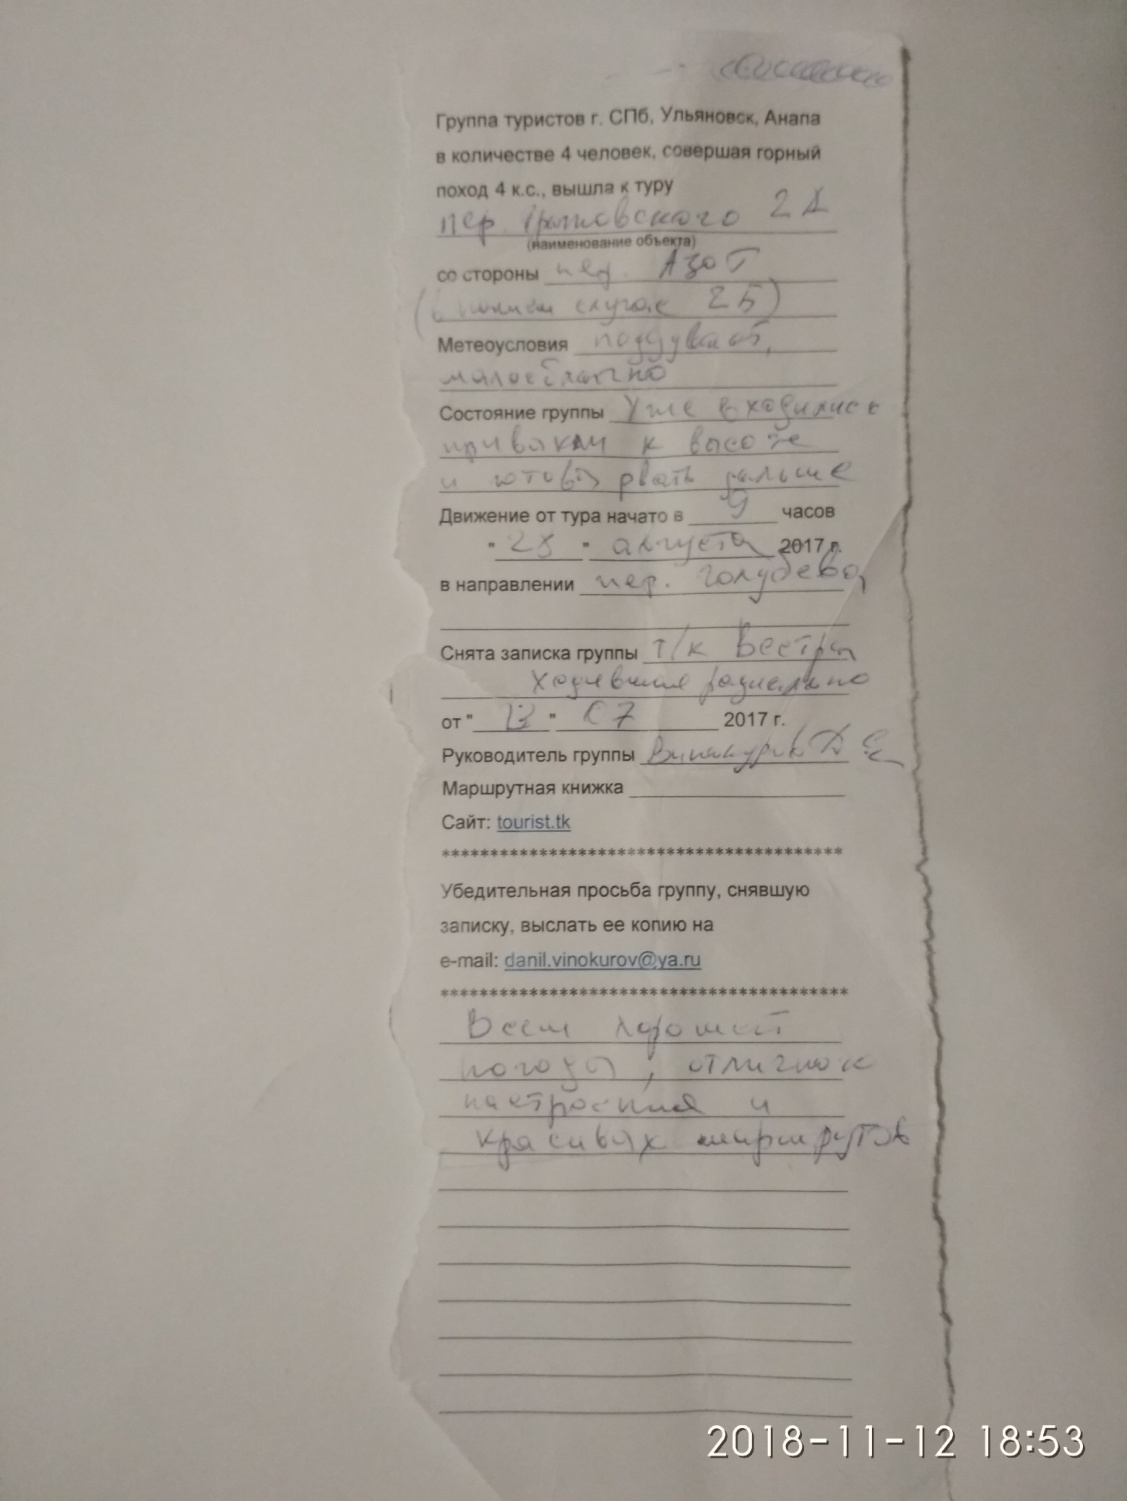 Группа туристов г. СПб, Ульяновск, Анапа
в количестве 4 человек, совершая горный
поход 4 к.с., вышла к туру
пер. 2А
(наименование объекта)
со стороны пер. Азот
случае 2Б)
Метеоусловия поддувает,
малооблачно
Состояние группы Уже
к высоте
и готовы рвать дальше
Движение от тура начато в 9 часов
" 28 " августа 2017 г.
в направлении пер. Голубева
Снята записка группы т/к Вестра
ходившая радиально
от " 13 " 07 2017 г.
Руководитель группы Винокуров Д Е
Маршрутная книжка
Сайт: tourist.tk
******************************************
Убедительная просьба группу, снявшую
записку, выслать ее копию на
e-mail: danil.vinokurov@ya.ru
******************************************
Всем хорошей
погоды, отличного
настроения и
красивых маршрутов
2018-11-12 18:53